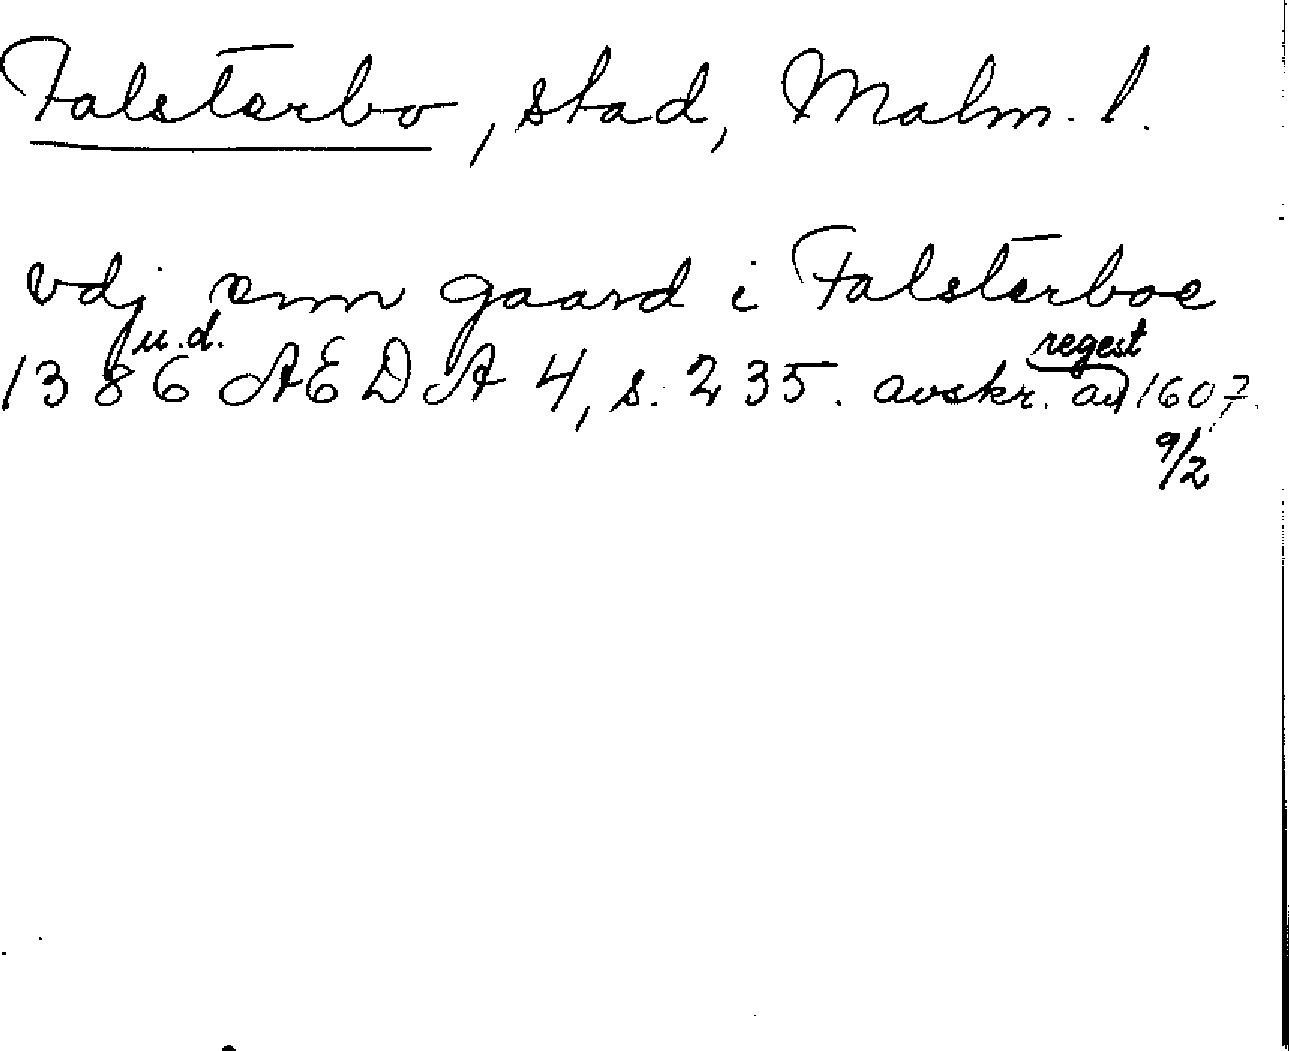 Falsterbo, stad, Malm. l.
vdj ænn gaard i Falsterboe
1386 u.d. AEDA 4, s. 235. avskr. av regest 1607
9/2